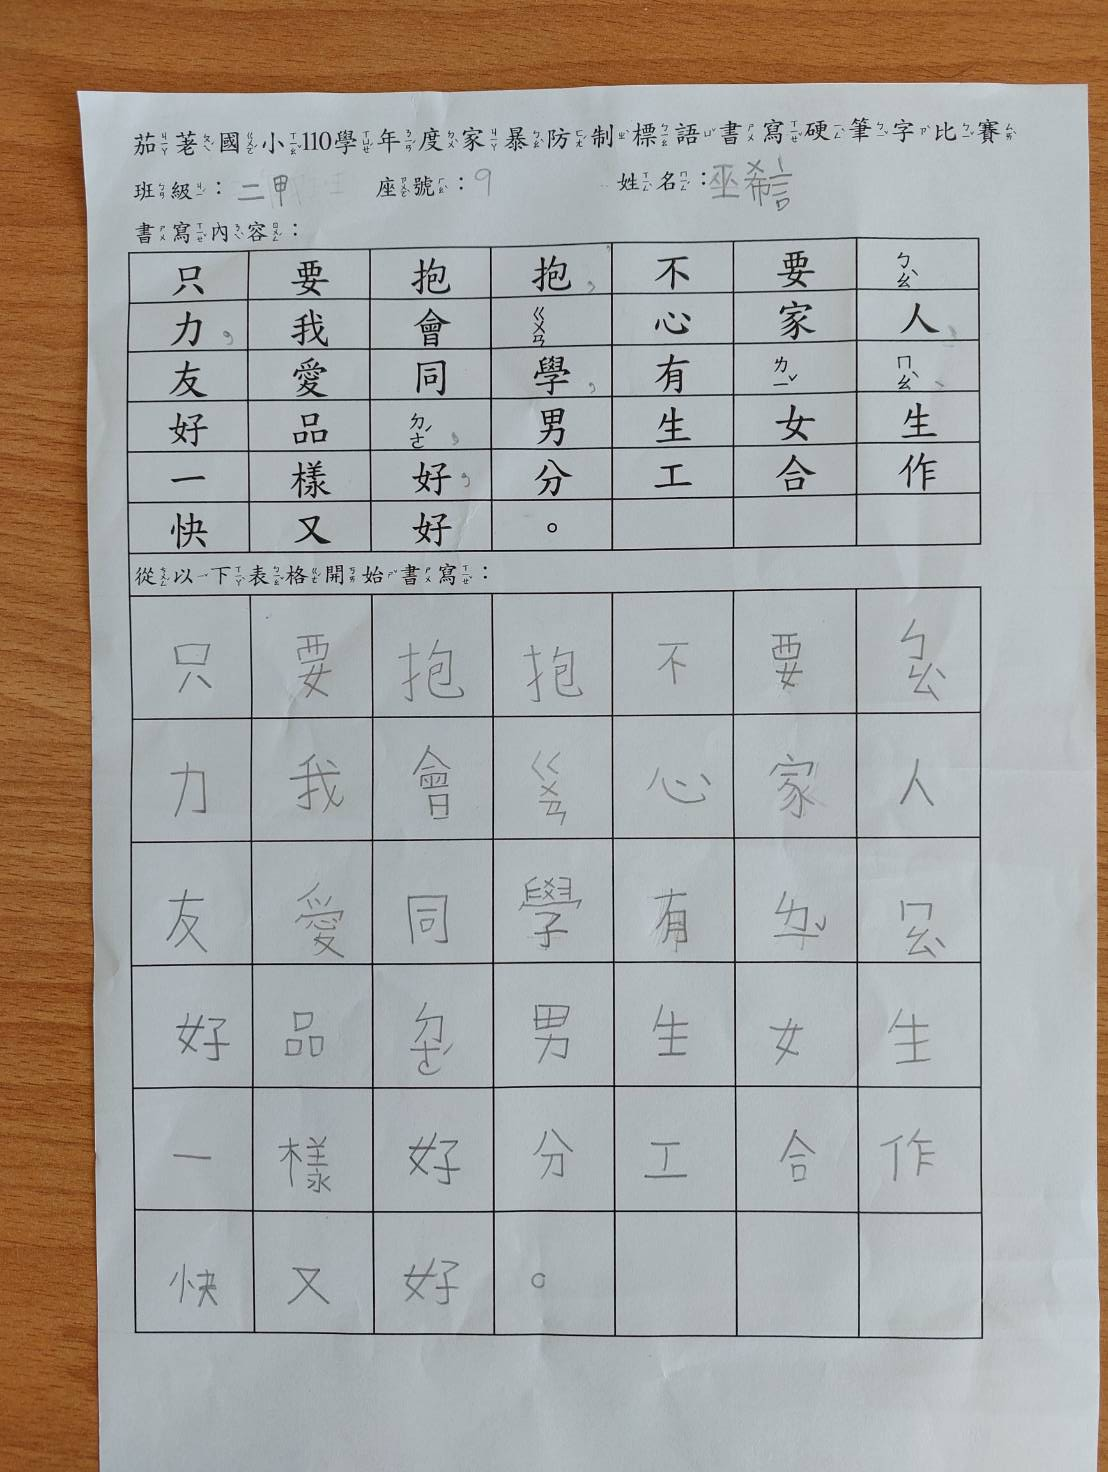 茄荖國小110學年度家暴防制標語書寫硬筆字比賽
班級：二甲 座號：9 姓名：巫希言
書寫內容：
只要抱抱，不要ㄅㄠˋ
力，我會ㄍㄨㄢ心家人，
友愛同學，有ㄌㄧˇㄇㄠˋ、
好品ㄉㄜˊ，男生女生
一樣好，分工合作
快又好。
從以下表格開始書寫：
只要抱抱不要ㄅㄠˋ
力我會ㄍㄨㄢ心家人
友愛同學有ㄌㄧˇㄇㄠˋ
好品ㄉㄜˊ男生女生
一樣好分工合作
快又好。